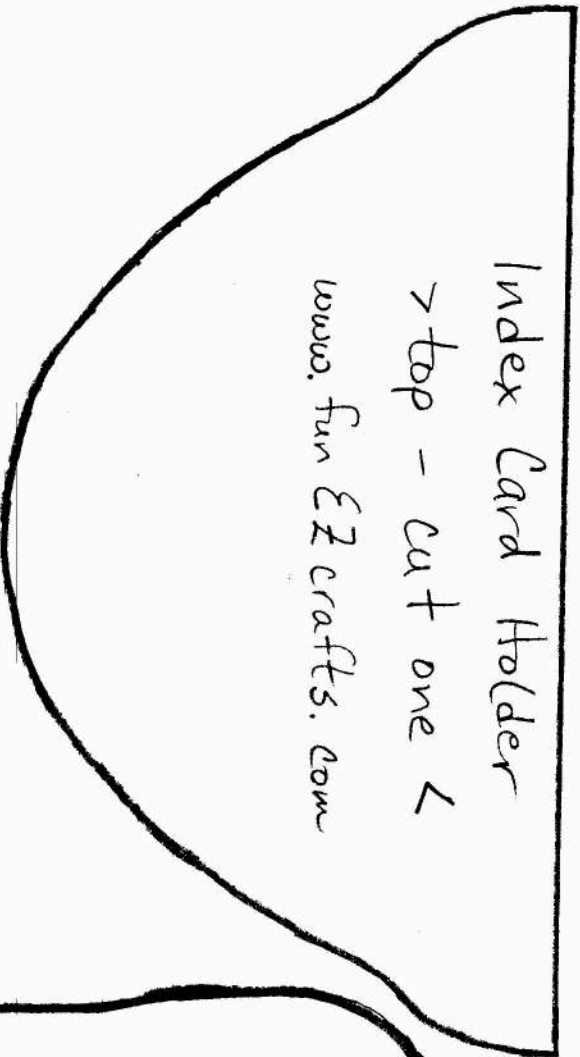 Index Card Holder
> top - cut one <
www.funEZcrafts.com